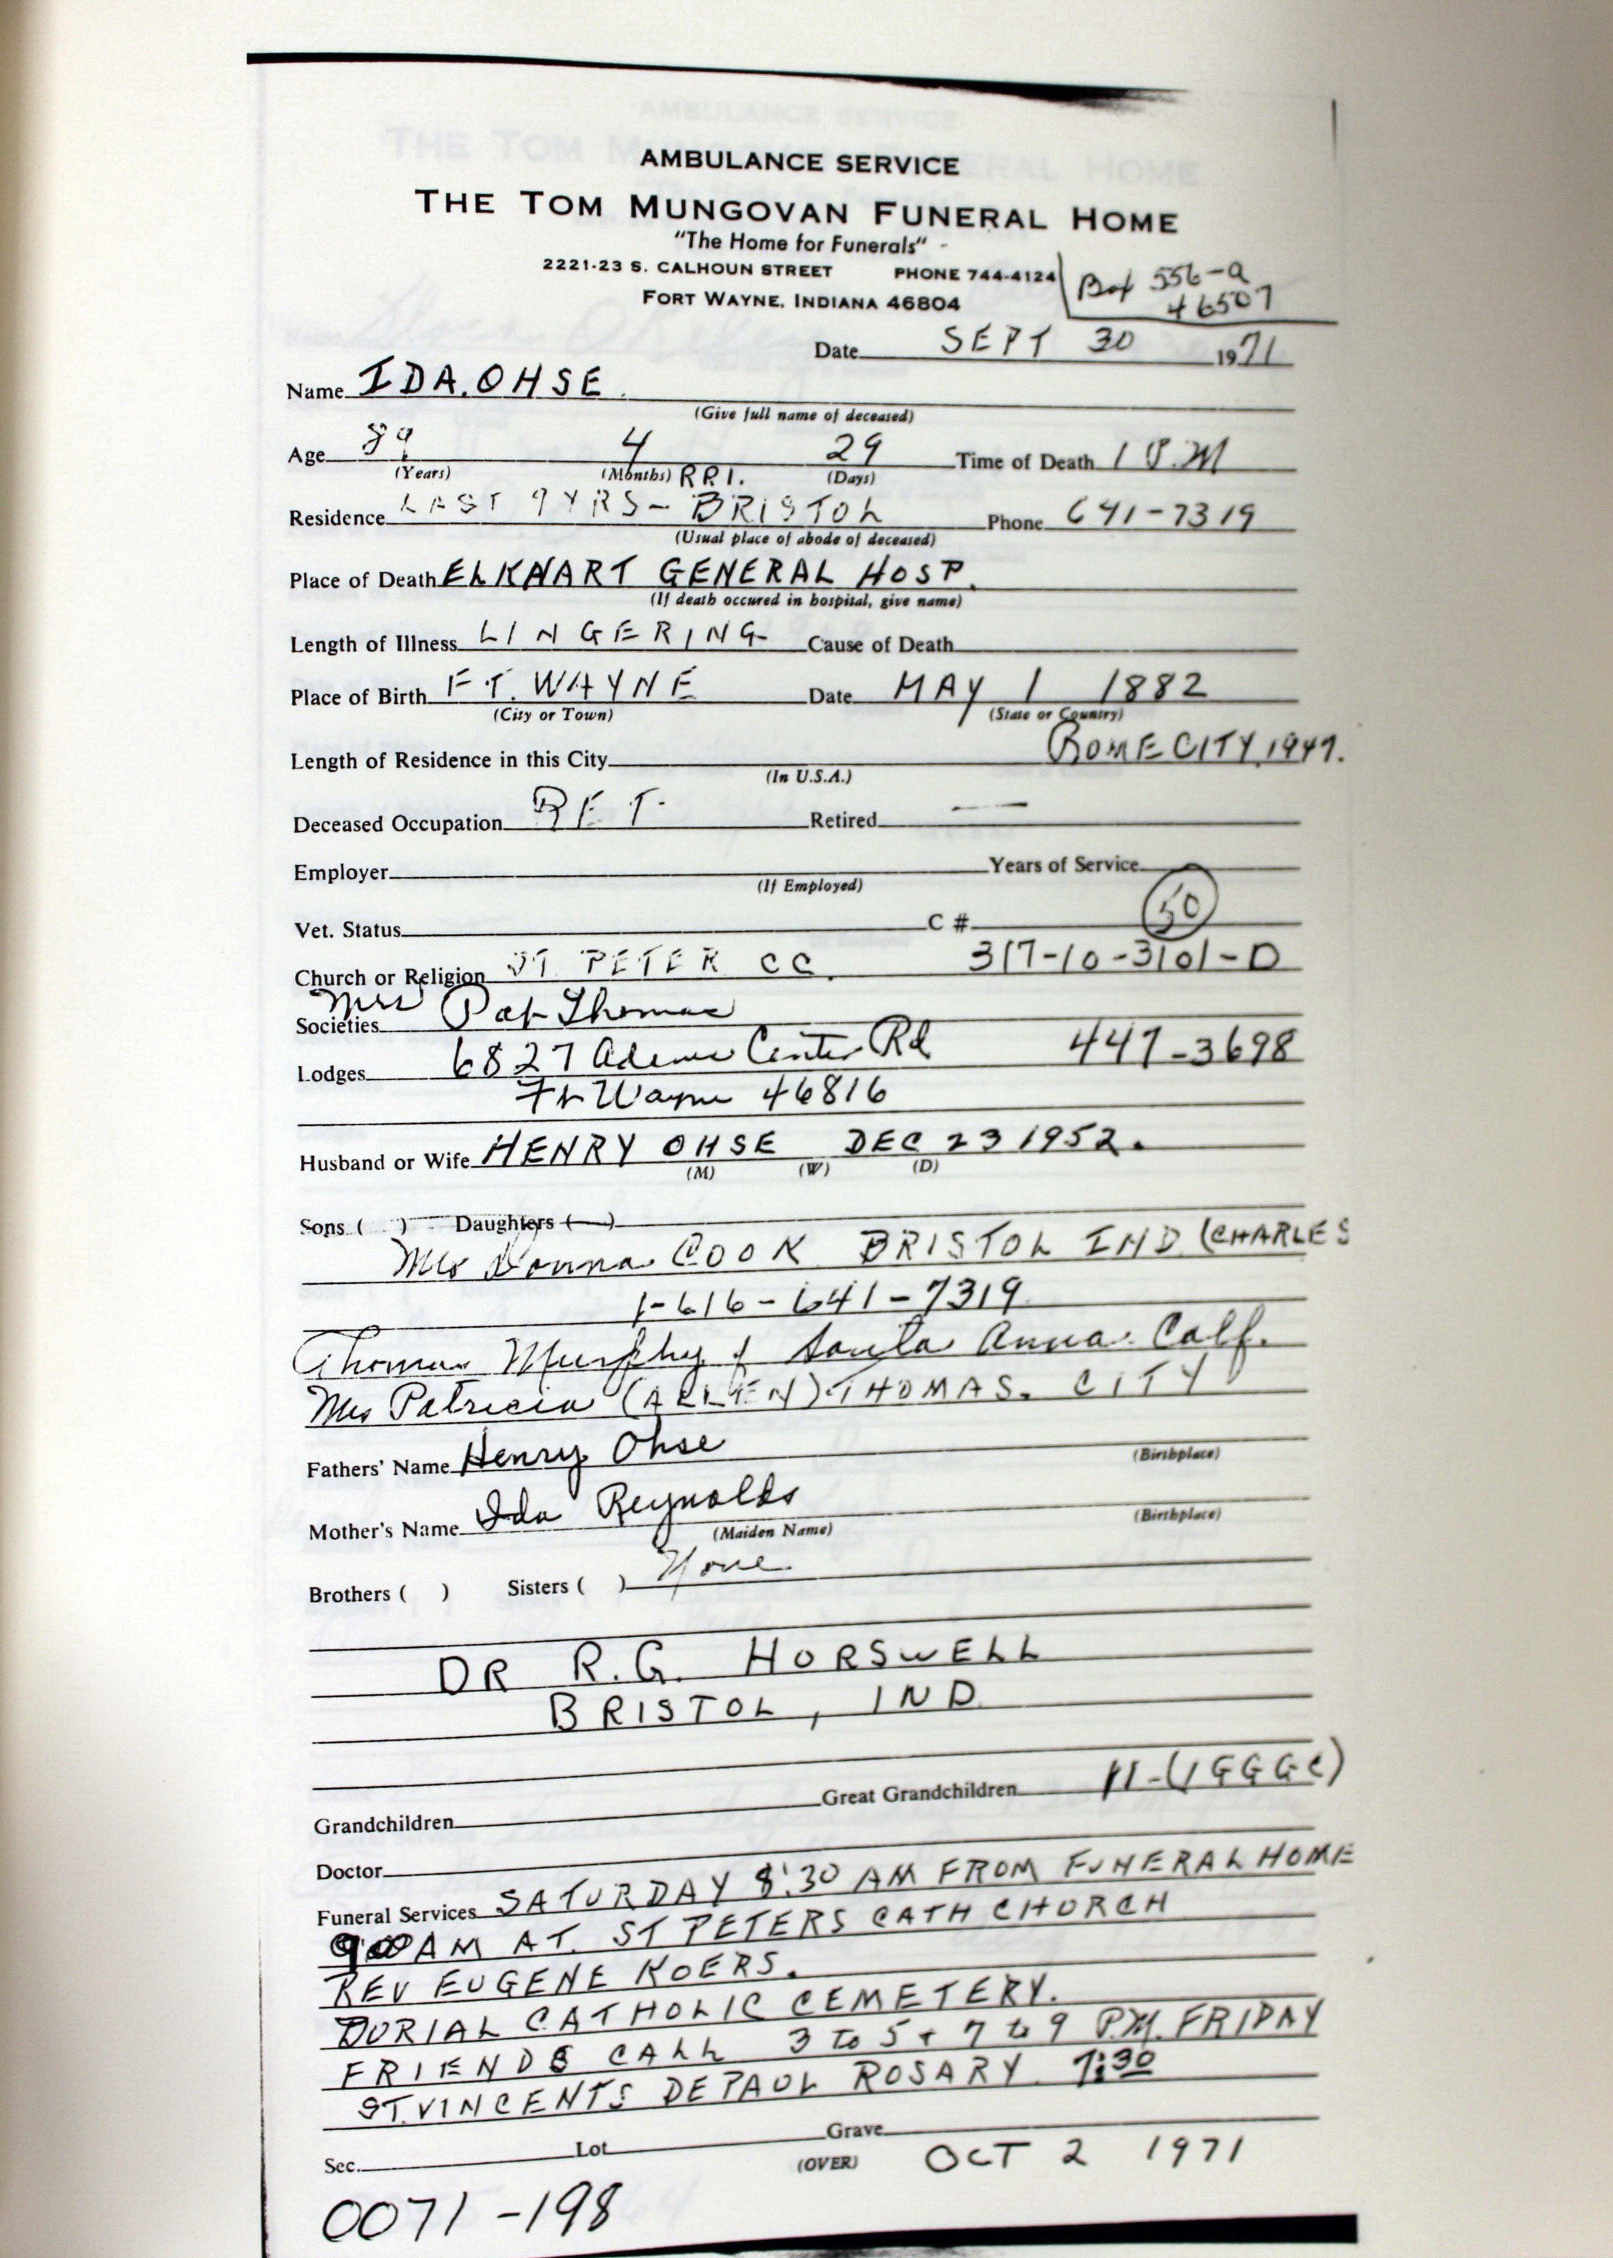 AMBULANCE SERVICE
THE TOM MUNGOVAN FUNERAL HOME
"The Home for Funerals"
2221-23 S. CALHOUN STREET PHONE 744-4124
FORT WAYNE, INDIANA 46804
Box 556-a
46507
Date SEPT 30 1971
Name IDA. OHSE
(Give full name of deceased)
Age 89 4 29 Time of Death 1 P.M
(Years) (Months) RR1. (Days)
Residence LAST 9 YRS - BRISTOL Phone 641-7319
(Usual place of abode of deceased)
Place of Death ELKHART GENERAL HOSP.
(If death occured in hospital, give name)
Length of Illness LINGERING Cause of Death
Place of Birth FT. WAYNE Date MAY 1 1882
(City or Town) (State or Country)
Length of Residence in this City ROME CITY, 1947.
(In U.S.A.)
Deceased Occupation RET. Retired —
Employer Years of Service
(If Employed)
Vet. Status C # 50
Church or Religion ST. PETER CC. 317-10-3101-D
Societies Mrs Pat Thomas
Lodges 6827 Adams Center Rd 447-3698
Ft Wayne 46816
Husband or Wife HENRY OHSE DEC 23 1952.
(M) (W) (D)
Sons ( ) Daughters ( )
Mrs Donna COOK BRISTOL IND (CHARLES
1-616-641-7319
Thomas Murphy of Santa Anna Calf.
Mrs Patricia (ALLEN) THOMAS. CITY
Fathers' Name Henry Ohse
(Birthplace)
Mother's Name Ida Reynolds
(Maiden Name) (Birthplace)
Brothers ( ) Sisters ( ) None
DR R.G. HORSWELL
BRISTOL, IND
Grandchildren Great Grandchildren 11-(1GGGC)
Doctor
Funeral Services SATURDAY 8:30 AM FROM FUNERAL HOME
9:00 AM AT. ST PETERS CATH CHURCH
REV EUGENE KOERS.
BURIAL CATHOLIC CEMETERY.
FRIENDS CALL 3 to 5 + 7 to 9 P.M. FRIDAY
ST. VINCENTS DEPAUL ROSARY 7:30
Sec. Lot Grave
(OVER) OCT 2 1971
0071-198